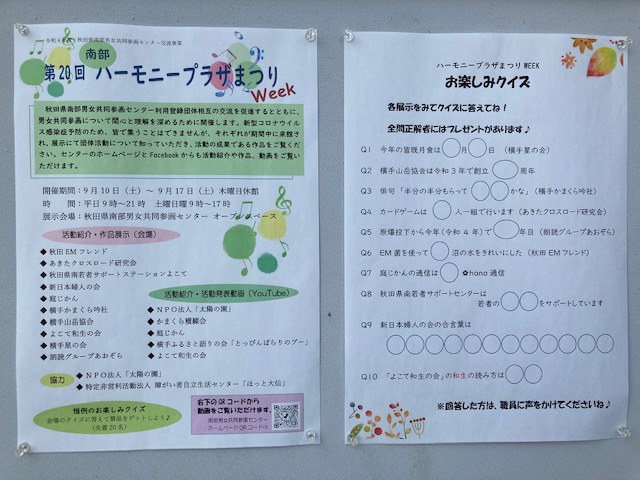 令和4年度 秋田県南部男女共同参画センター交流事業
南部
第20回 ハーモニープラザまつり
Week
秋田県南部男女共同参画センター利用登録団体相互の交流を促進するとともに、
男女共同参画について関心と理解を深めるために開催します。新型コロナウイル
ス感染症予防のため、皆で集うことはできませんが、それぞれが期間中に来館さ
れ、展示にて団体活動について知っていただき、活動の成果である作品をご覧くだ
さい。センターのホームページとFacebookからも活動紹介や作品、動画をご覧い
ただけます。
開催期間:9月10日(土)～ 9月17日(土)木曜日休館
時 間:平日9時～21時 土曜日曜9時～17時
展示会場:秋田県南部男女共同参画センター オープンスペース
活動紹介・作品展示(会場)
◆ 秋田EMフレンド
◆ あきたクロスロード研究会
◆ 秋田県南若者サポートステーションよこて
◆ 新日本婦人の会
◆ 庭じかん
◆ 横手かまくら吟社
◆ 横手山岳協会
◆ よこて和生の会
◆ 横手星の会
◆ 朗読グループあおぞら
活動紹介・活動発表動画(YouTube)
◆ NPO法人「太陽の園」
◆ かまくら横繰会
◆ 庭じかん
◆ 横手ふるさと語りの会「とっぴんぱらりのプー」
◆ よこて和生の会
協力
◆ NPO法人「太陽の園」
◆ 特定非営利活動法人 障がい者自立生活センター「ほっと大仙」
恒例のお楽しみクイズ
会場のクイズに答えて景品をゲットしよう♪
(先着20名)
右下のQRコードから
動画をご覧いただけます。
南部男女共同参画センター
ホームページQRコード⇨
ハーモニープラザまつりWEEK
お楽しみクイズ
各展示をみてクイズに答えてね!
全問正解者にはプレゼントがあります♪
Q1 今年の皆既月食は○月○日 (横手星の会)
Q2 横手山岳協会は令和3年で創立○周年
Q3 俳句「半分の半分もらって○○かな」(横手かまくら吟社)
Q4 カードゲームは○人一組で行います(あきたクロスロード研究会)
Q5 原爆投下から今年(令和4年)で○年目(朗読グループあおぞら)
Q6 EM菌を使って○沼の水をきれいにした(秋田EMフレンド)
Q7 庭じかんの通信は○✿hana通信
Q8 秋田県南若者サポートセンターは
若者の○○をサポートしています
Q9 新日本婦人の会の合言葉は
○○○○○○○○○○○○○
Q10 「よこて和生の会」の和生の読み方は○○
※回答した方は、職員に声をかけてくださいね♪